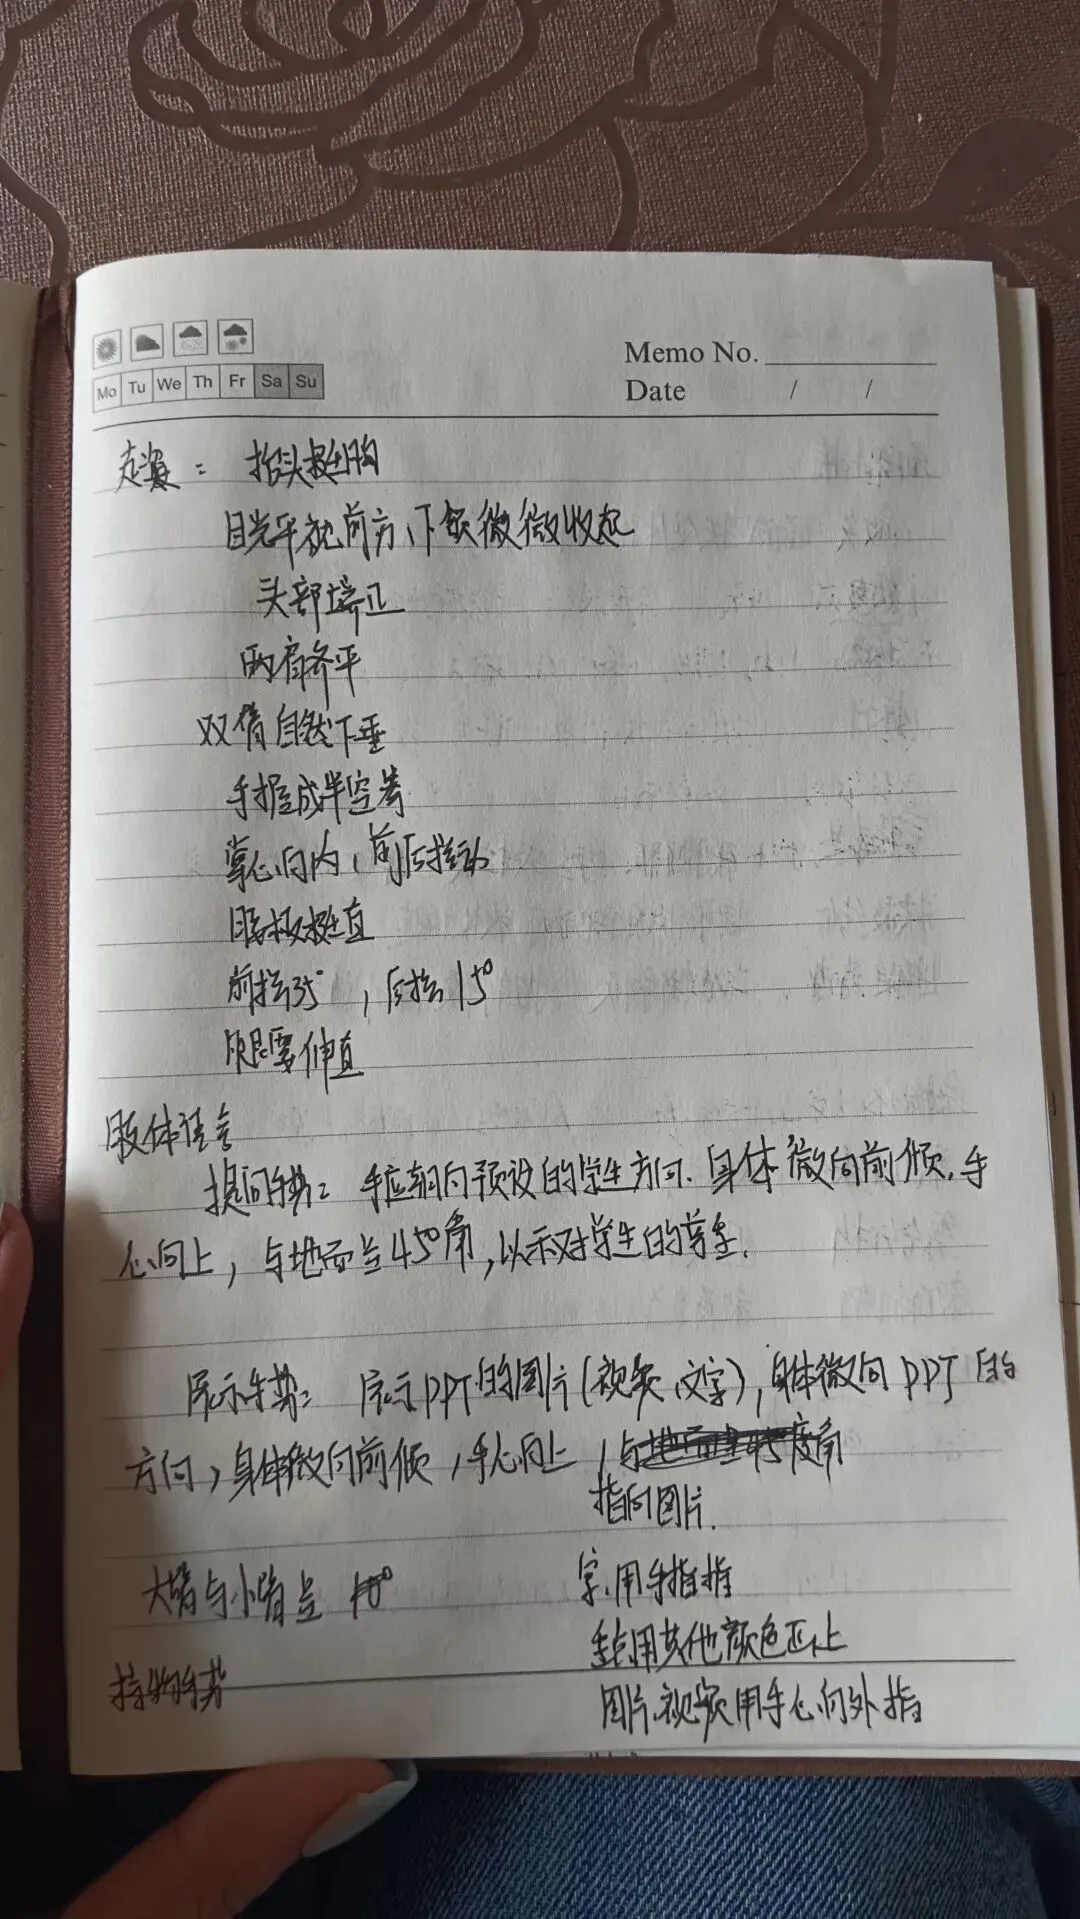 Memo No.
Mo Tu We Th Fr Sa Su
Date / /
走姿： 抬头挺胸
目光平视前方、下颌微微收起
头部端正
两肩齐平
双臂自然下垂
手握成半空拳
掌心向内、前后摆动
腰板挺直
前摆35°，后摆15°
腿要伸直
肢体语言
提问手势： 手应朝向预设的学生方向. 身体微向前倾, 手
心向上, 与地面呈45°角, 以示对学生的尊重.
展示手势： 展示PPT的图片(视频、文字), 身体微向PPT的
方向, 身体微向前倾, 手心向上, 与地面呈45度角
指向图片.
大臂与小臂呈
字、用手指指
重点用其他颜色
图片、视频用手心向外指
持物手势